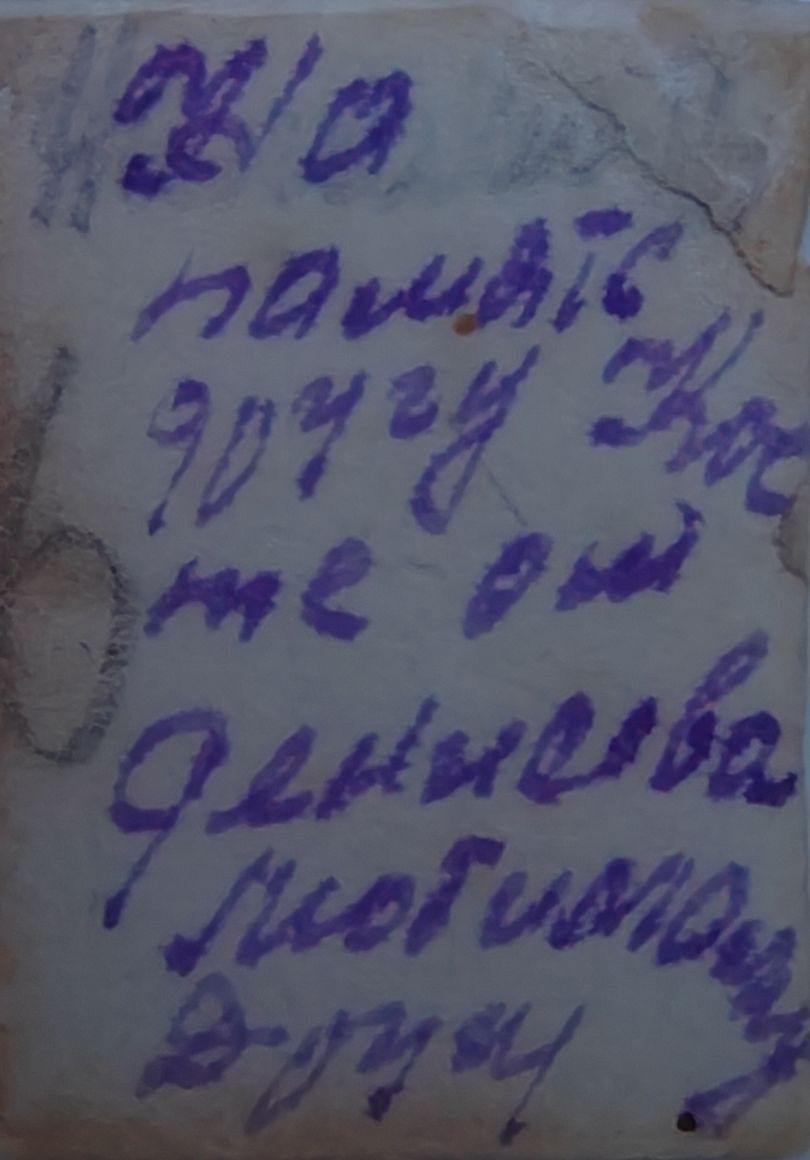 На
память
другу Кос
те от
Денисва
любимому
другу